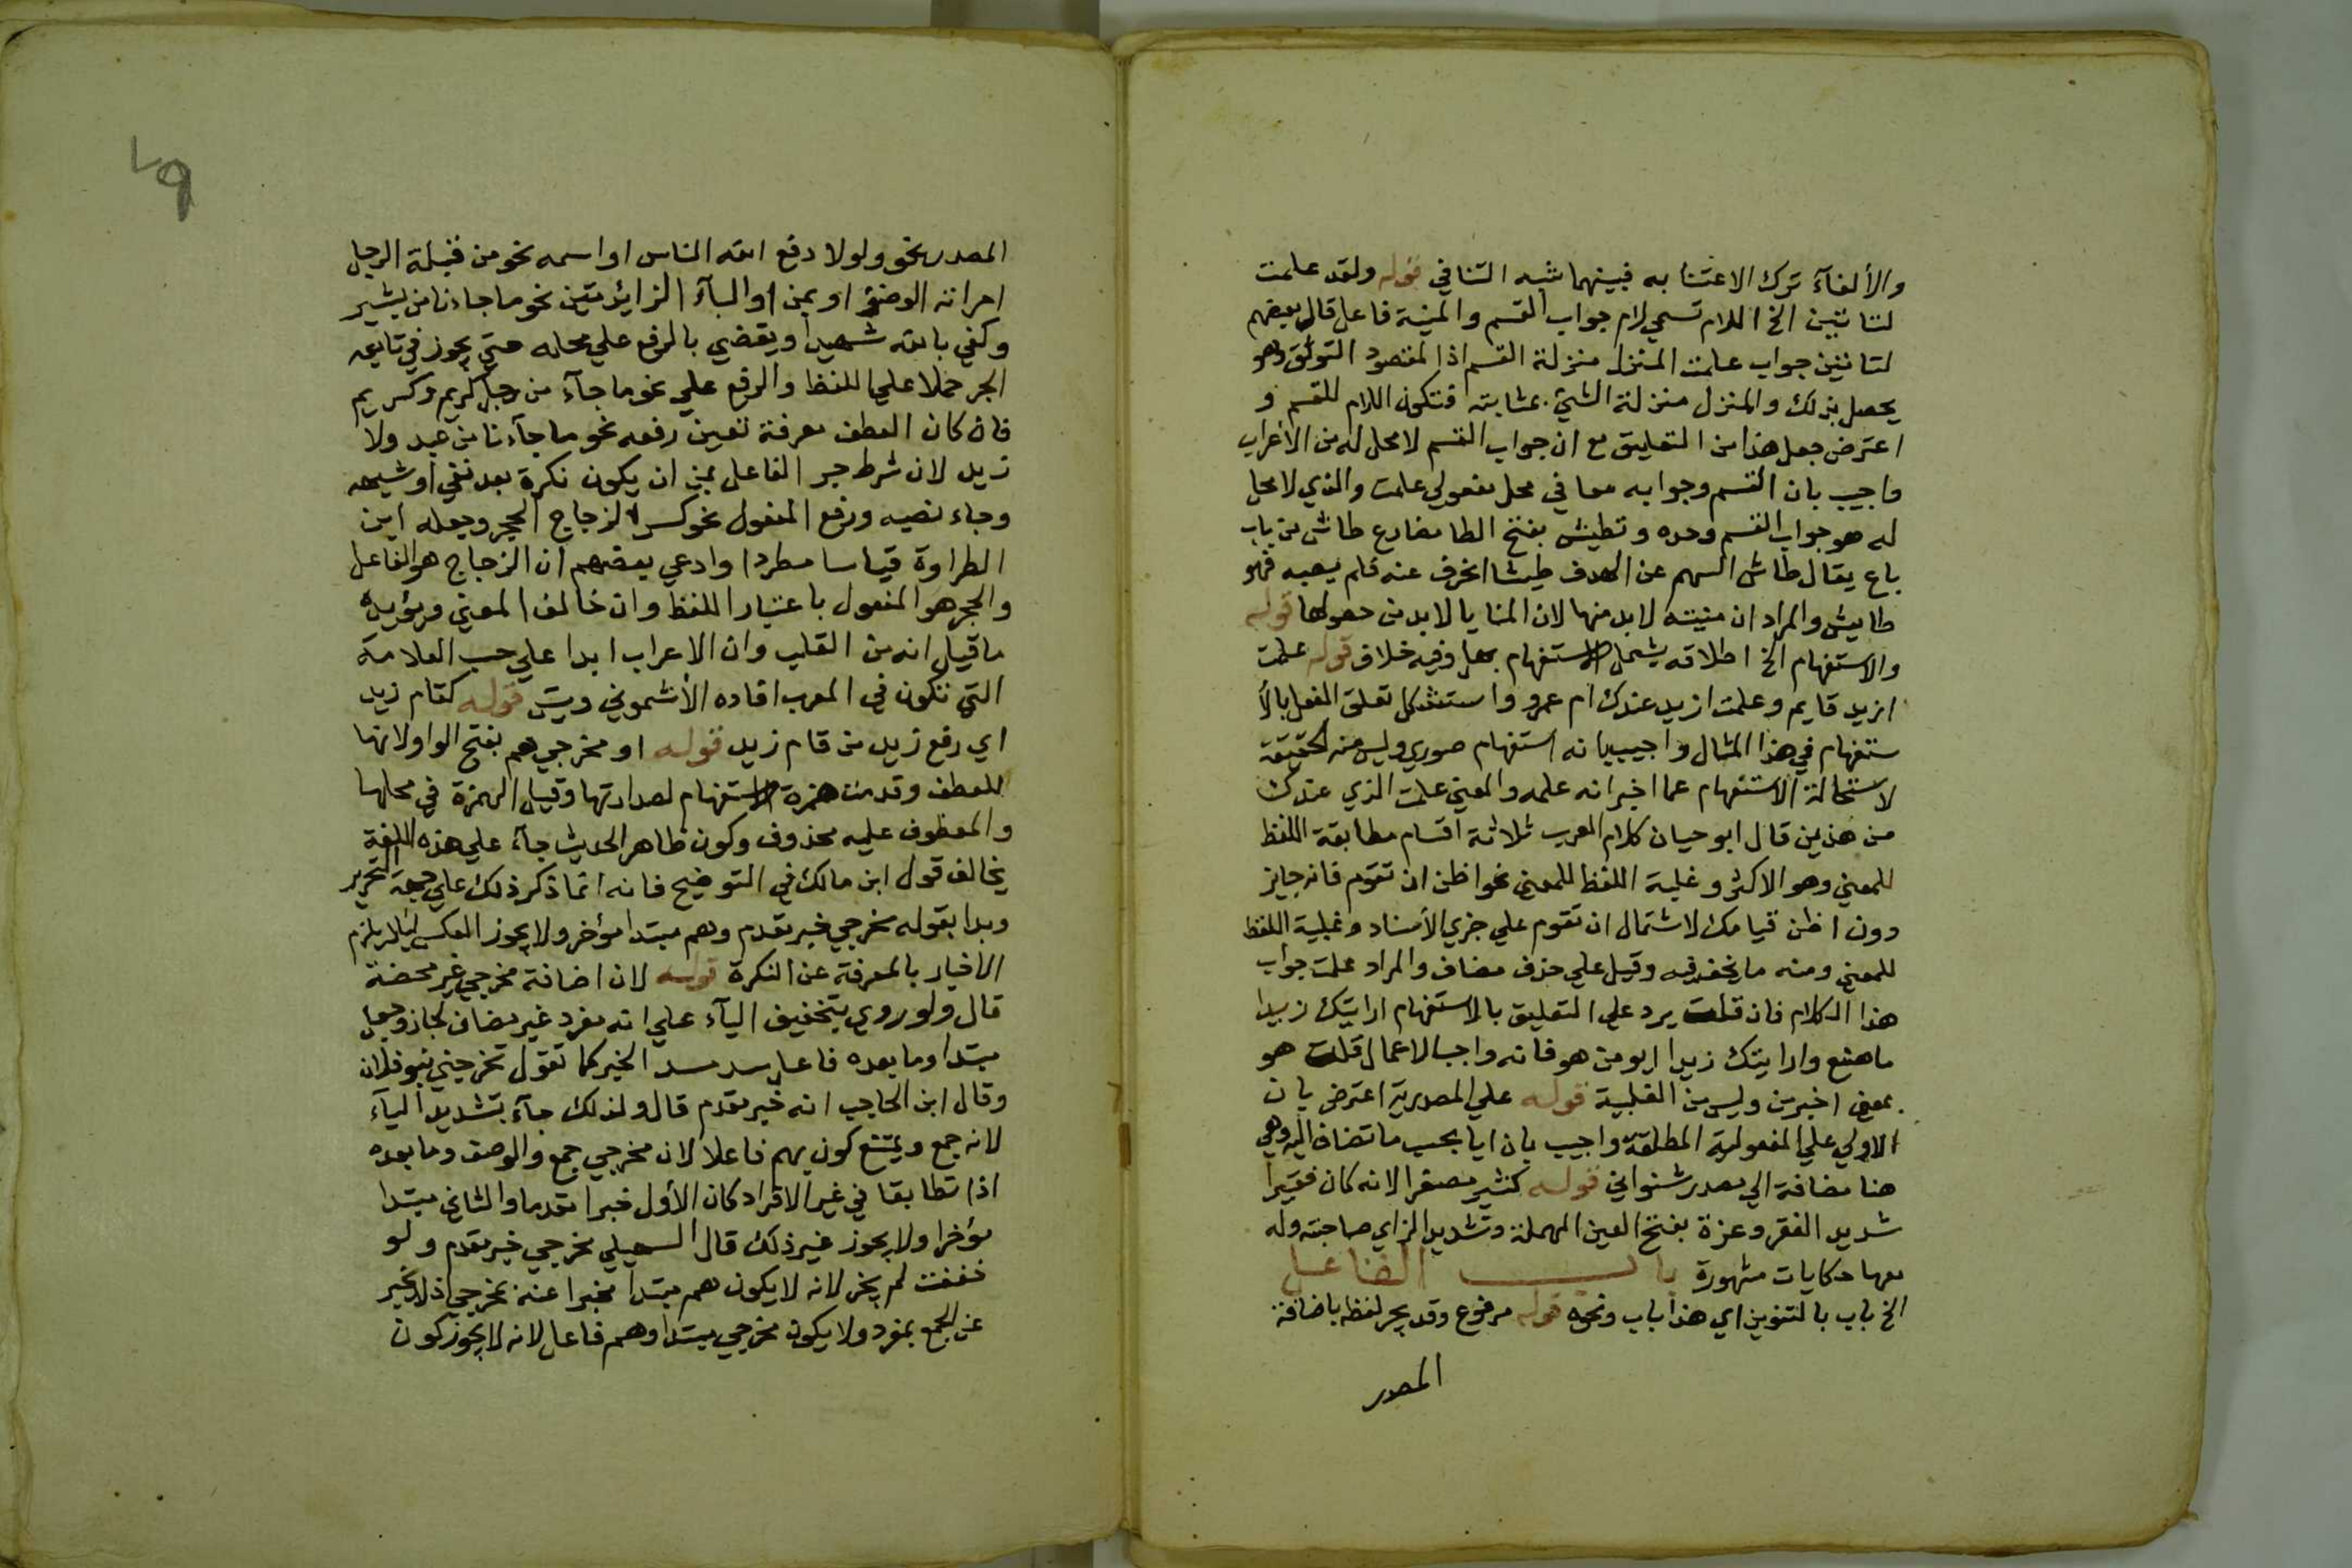 والألغآء ترك الاعتنا به فبينهما شبه التنافي قوله ولقد علمت
لتاتين الخ اللام تسمي لام جواب القسم والمنية فاعل قال بعضهم
لتاتين جواب علمت المنزل منزلة القسم اذ المقصود التوثق وهو
يحصل بذلك والمنزل منزلة الشئ بمثابته فتكون اللام للقسم و
اعترض جعل هذا من التعليق مع ان جواب القسم لا محل له من الاعراب
واجيب بان القسم وجوابه معا في محل مفعولي علمت والذي لا محل
له هو جواب القسم وحده وتطيش بفتح الطا مضارع طاش من باب
باع يقال طاش السهم عن الهدف طيشا انحرف عنه فلم يصبه فهو
طايش والمراد ان منيته لا بد منها لان المنايا لا بد من حصولها قوله
والاستفهام الخ اطلاقه يشمل الاستفهام بهل وفيه خلاف قوله علمت
ازيد قايم وعلمت ازيد عندك ام عمرو واستشكل تعلق الفعل بالأ
ستفهام في هذا المثال واجيب بانه استفهام صوري وليس منه حقيقة
لاستحالة الاستفهام عما اخبر انه علمه والمعني علمت الذي عندك
من هذين قال ابو حيان كلام العرب ثلاثة اقسام مطابقة اللفظ
للمعني وهو الاكثر وغلبة اللفظ للمعني نحو اظن ان تقوم فانه جايز
دون اظن قيامك لاشتمال ان تقوم علي جزي الأسناد وغلبة اللفظ
للمعني ومنه ما نحن فيه وقيل علي حذف مضاف والمراد علمت جواب
هذا الكلام فان قلت يرد علي التعليق بالاستفهام ارايتك زيدا
ما صنع وارايتك زيدا ابو من هو فانه واجب الاعمال قلت هو
بمعني اخبرني وليس من القلبية قوله علي المصدرية اعترض بان
الاولي علي المفعولية المطلقة واجيب بان ايا بحسب ما تضاف اليه وهي
هنا مضافة الي مصدر شنواني قوله كثير مصغرا لانه كان فقيرا
شديد الفقر وعزة بفتح العين المهملة وتشديد الزاي صاحبته وله
معها حكايات مشهورة باب الفاعل
الخ باب بالتنوين اي هذا باب ونحوه قوله مرفوع وقد يجر لفظه باضافة
المصدر
المصدر نحو ولولا دفع الله الناس او اسمه نحو من قبلة الرجل
امراته الوضؤ او بمن او البآء الزائدتين نحو ما جاءنا من بشير
وكفي بالله شهيدا ويقضي بالرفع علي محله حتي يجوز في تابعه
الجر حملا علي اللفظ والرفع علي نحو ما جآء من رجل كريم وكريم
فان كان العطف معرفة تعين رفعه نحو ما جآءنا من عبد ولا
زيد لان شرط جر الفاعل بمن ان يكون نكرة بعد نفي او شبهه
وجاء نصبه ورفع المفعول نحو كسر الزجاج الحجر وجعله ابن
الطراوة قياسا مطردا وادعي بعضهم ان الزجاج هو الفاعل
والحجر هو المفعول باعتبار اللفظ وان خالف المعني ويؤيده
ما قيل انه من القلب وان الاعراب ابدا علي حسب العلامة
التي تكون في المعرب افاده الأشموني ويس قوله كقام زيد
اي رفع زيد من قام زيد قوله او مخرجي هم بفتح الواو لانها
للعطف وقدمت همزة الاستفهام لصدارتها وقيل الهمزة في محلها
والمعطوف عليه محذوف وكون ظاهر الحديث جآء علي هذه اللغة
يخالف قول ابن مالك في التوضيح فانه انما ذكر ذلك علي جهة التحرير
وبدا بقوله مخرجي خبر مقدم وهم مبتدا مؤخر ولا يجوز العكس ليلا يلزم
الاخبار بالمعرفة عن النكرة قوله لان اضافة مخرجي غير محضة
قال ولو روي بتخفيف اليآء علي انه مفرد غير مضاف لجاز وجعل
مبتدا وما بعده فاعل سد مسد الخبر كما تقول تخرجني بنو فلان
وقال ابن الحاجب انه خبر مقدم قال ولذلك جآء بتشديد اليآء
لانه جمع ويمتنع كون هم فاعلا لان مخرجي جمع والوصف وما بعده
اذا تطابقا في غير الافراد كان الأول خبرا مقدما والثاني مبتدا
مؤخرا ولا يجوز غير ذلك قال السهيلي مخرجي خبر مقدم ولو
خففت لم يجز لانه لا يكون هم مبتدا مخبرا عنه بمخرجي اذ لا يخبر
عن الجمع بمفرد ولا يكون مخرجي مبتدا وهم فاعل لانه لا يجوز كون